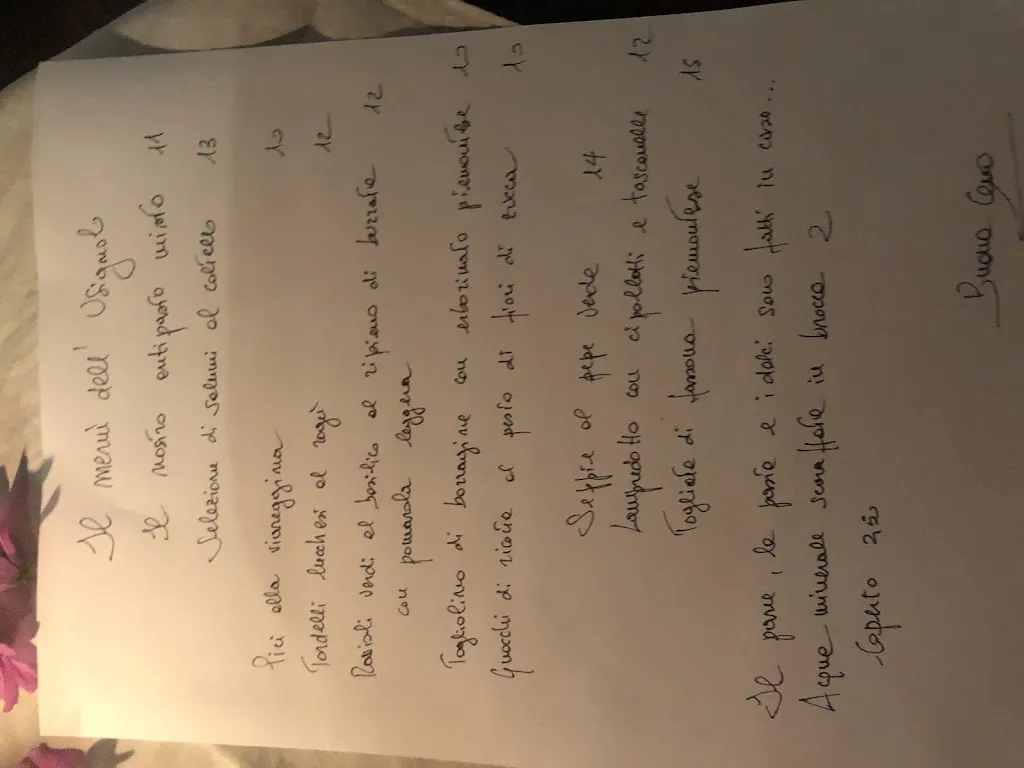 Il menù dell' Usignolo
Il nostro antipasto misto 11
Selezione di salumi al coltello 13
Pici alla viareggina 10
Tordelli lucchesi al ragù 12
Ravioli verdi al basilico al ripieno di burrata 12
con pomarola leggera
Tagliolino di borragine con erborinato piemontese 10
Gnocchi di ricotta al pesto di fiori di zucca 10
Seppie al pepe verde 14
Lampredotto con cipollotti e tascanelle 12
Tagliata di fassona piemontese 15
Il pane, le paste e i dolci sono fatti in casa...
Acqua minerale sena fatare in brocca 2
Coperto 2,50
Buona Cena